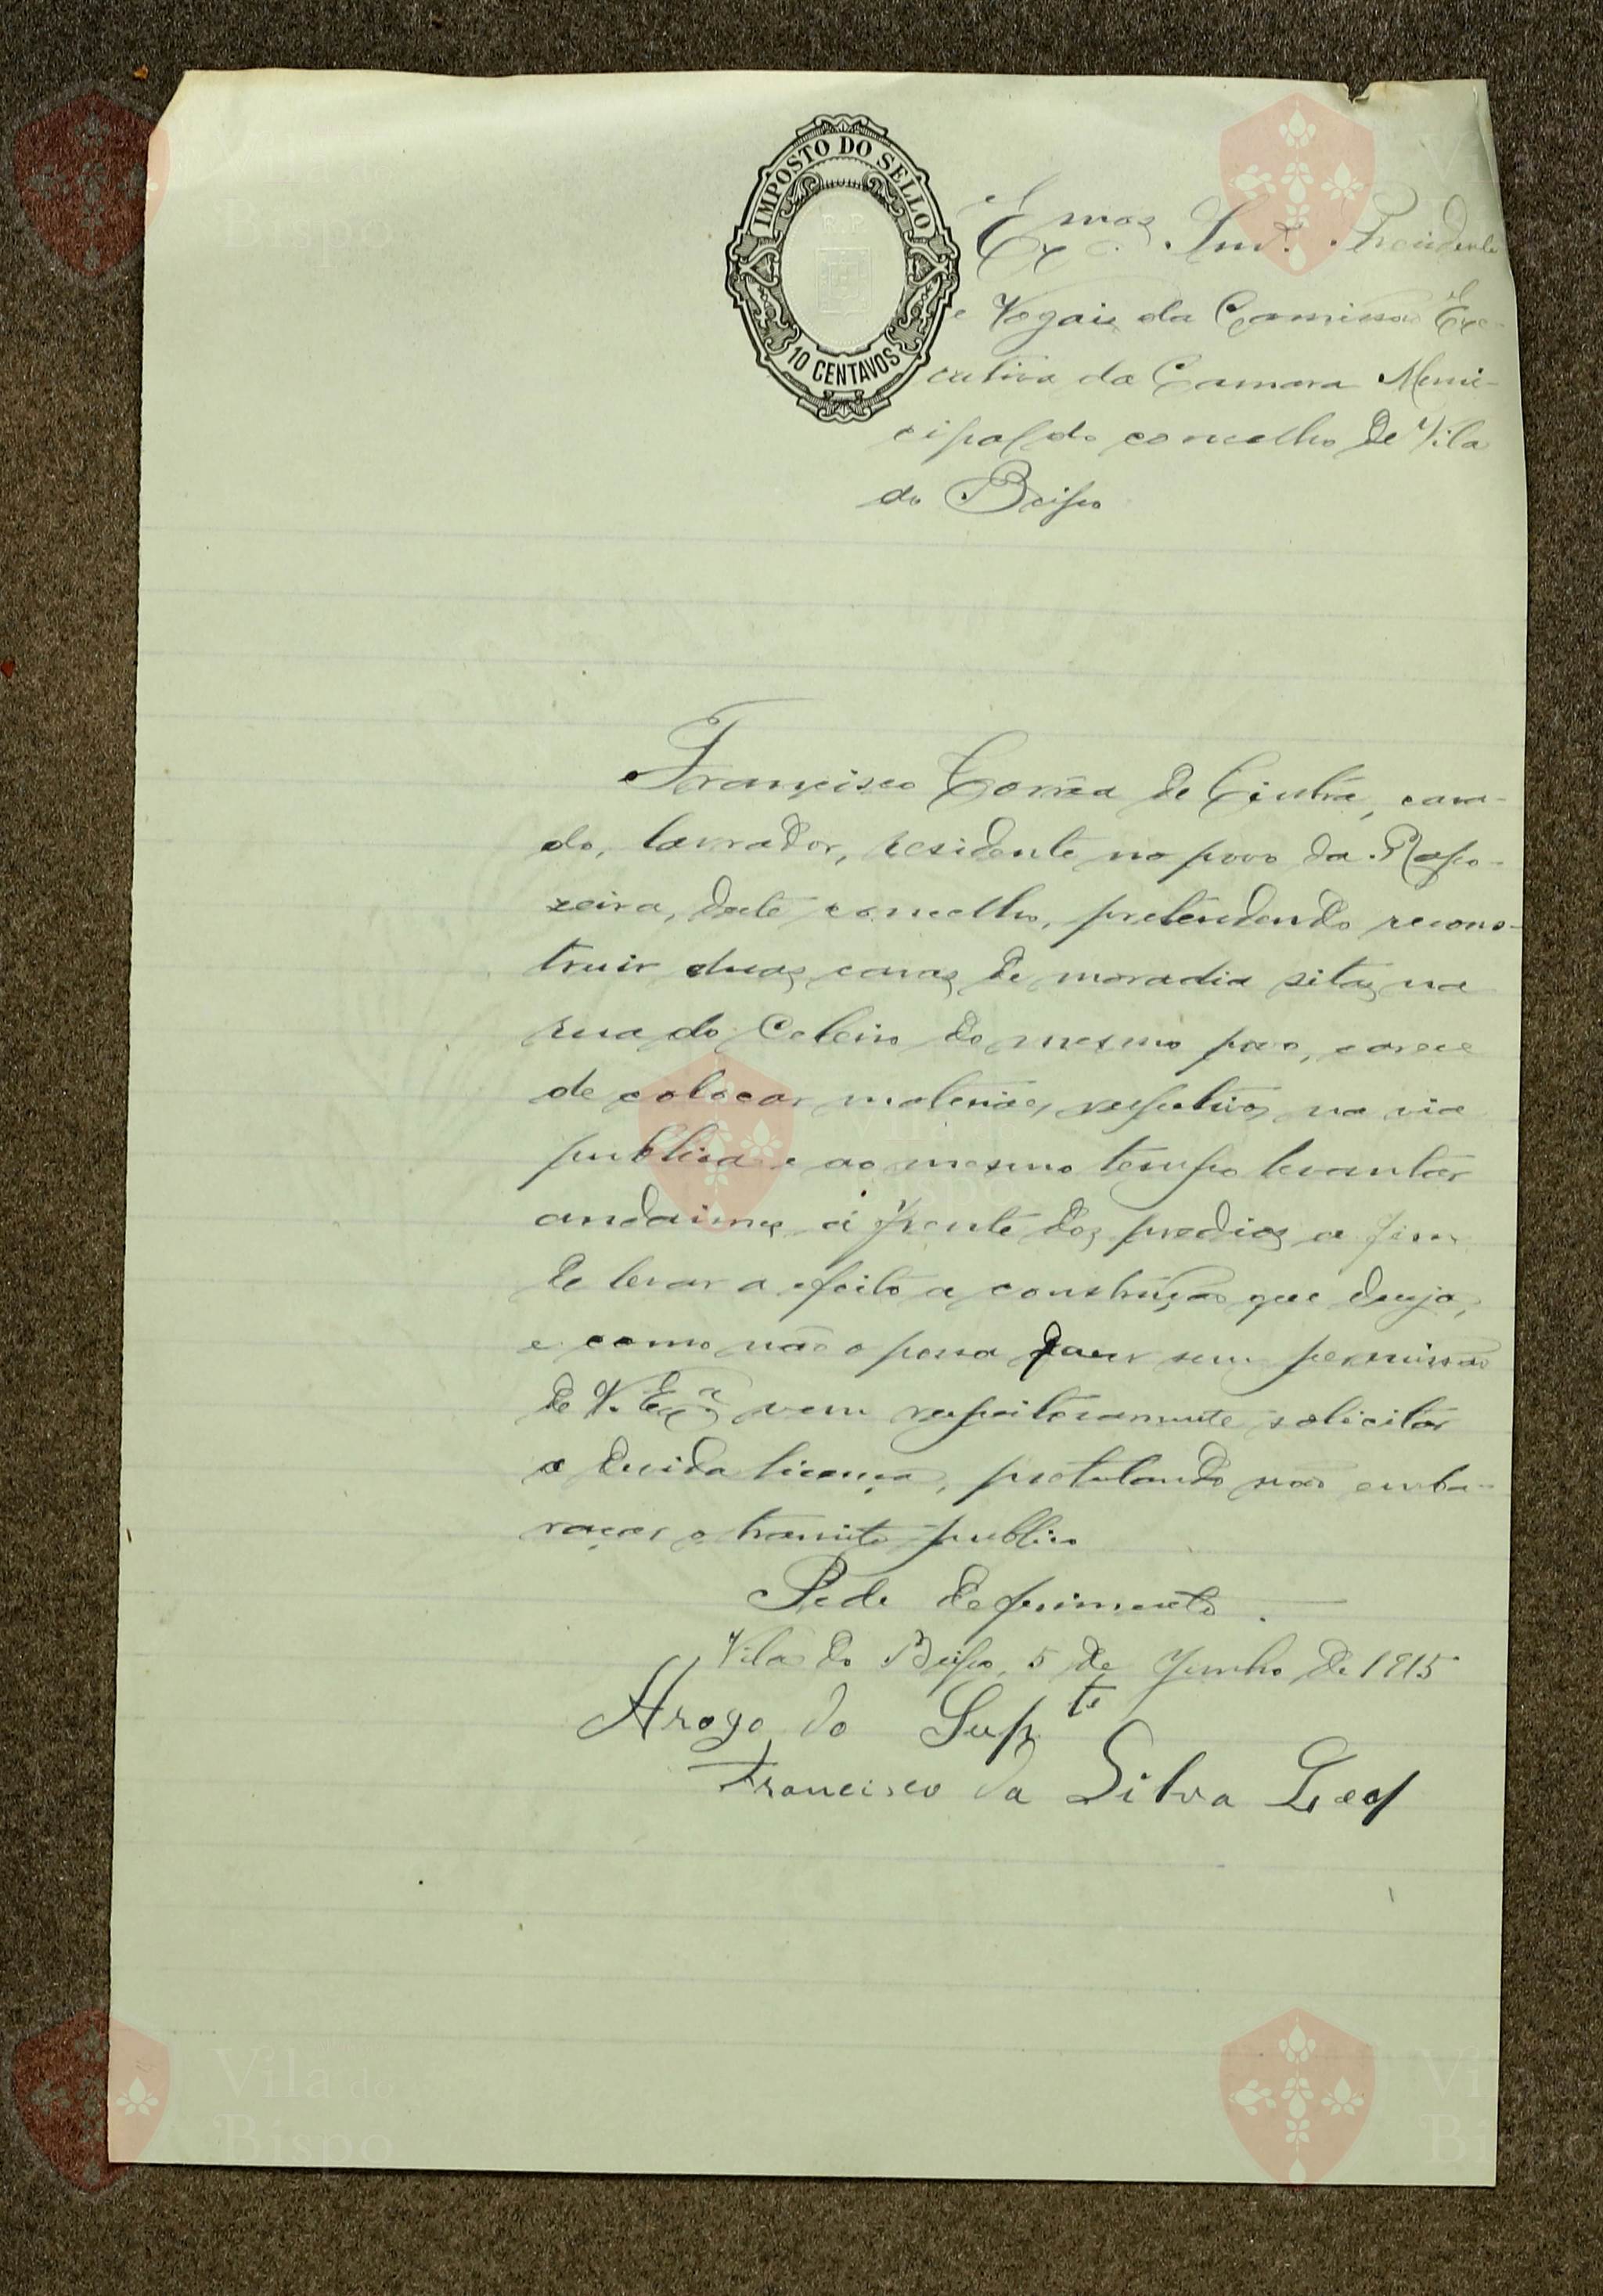 IMPOSTO DO SELLO
R.P.
10 CENTAVOS
Exmos Snrs. Presidente
e Vogais da Comissão Exe-
cutiva da Camara Muni-
cipal do concelho de Vila
do Bispo
Francisco Corrêa de Cintra, casa-
do, lavrador, residente no povo da Rapo-
zeira, deste concelho, pretendendo recons-
truir duas casas de moradia sitas na
rua do Celeiro do mesmo povo, carece
de colocar materiaes respetivos na via
publica e ao mesmo tempo levantar
andaimes á frente dos predios a fim
de levar a efeito a construção que deseja,
e como não o possa fazer sem permissão
de V. Exas vem respeitosamente solicitar
a devida licença, protestando não emba-
raçar o transito publico
Pede deferimento.
Vila do Bispo, 5 de Junho de 1915
Arogo do Supte
Francisco da Silva Leal
Vila do
Bispo